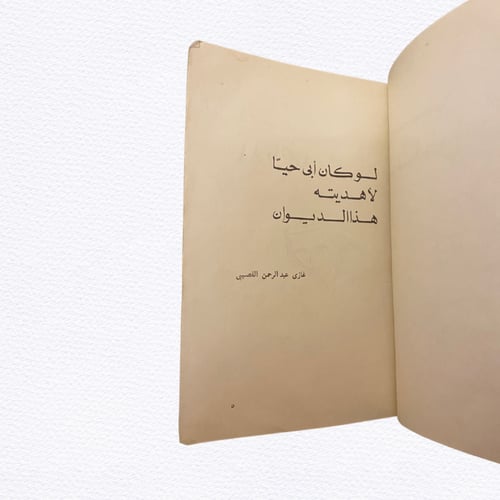 لو كان أبي حيّا
لأهديته
هذا الديوان
غازي عبد الرحمن القصيبي
٥